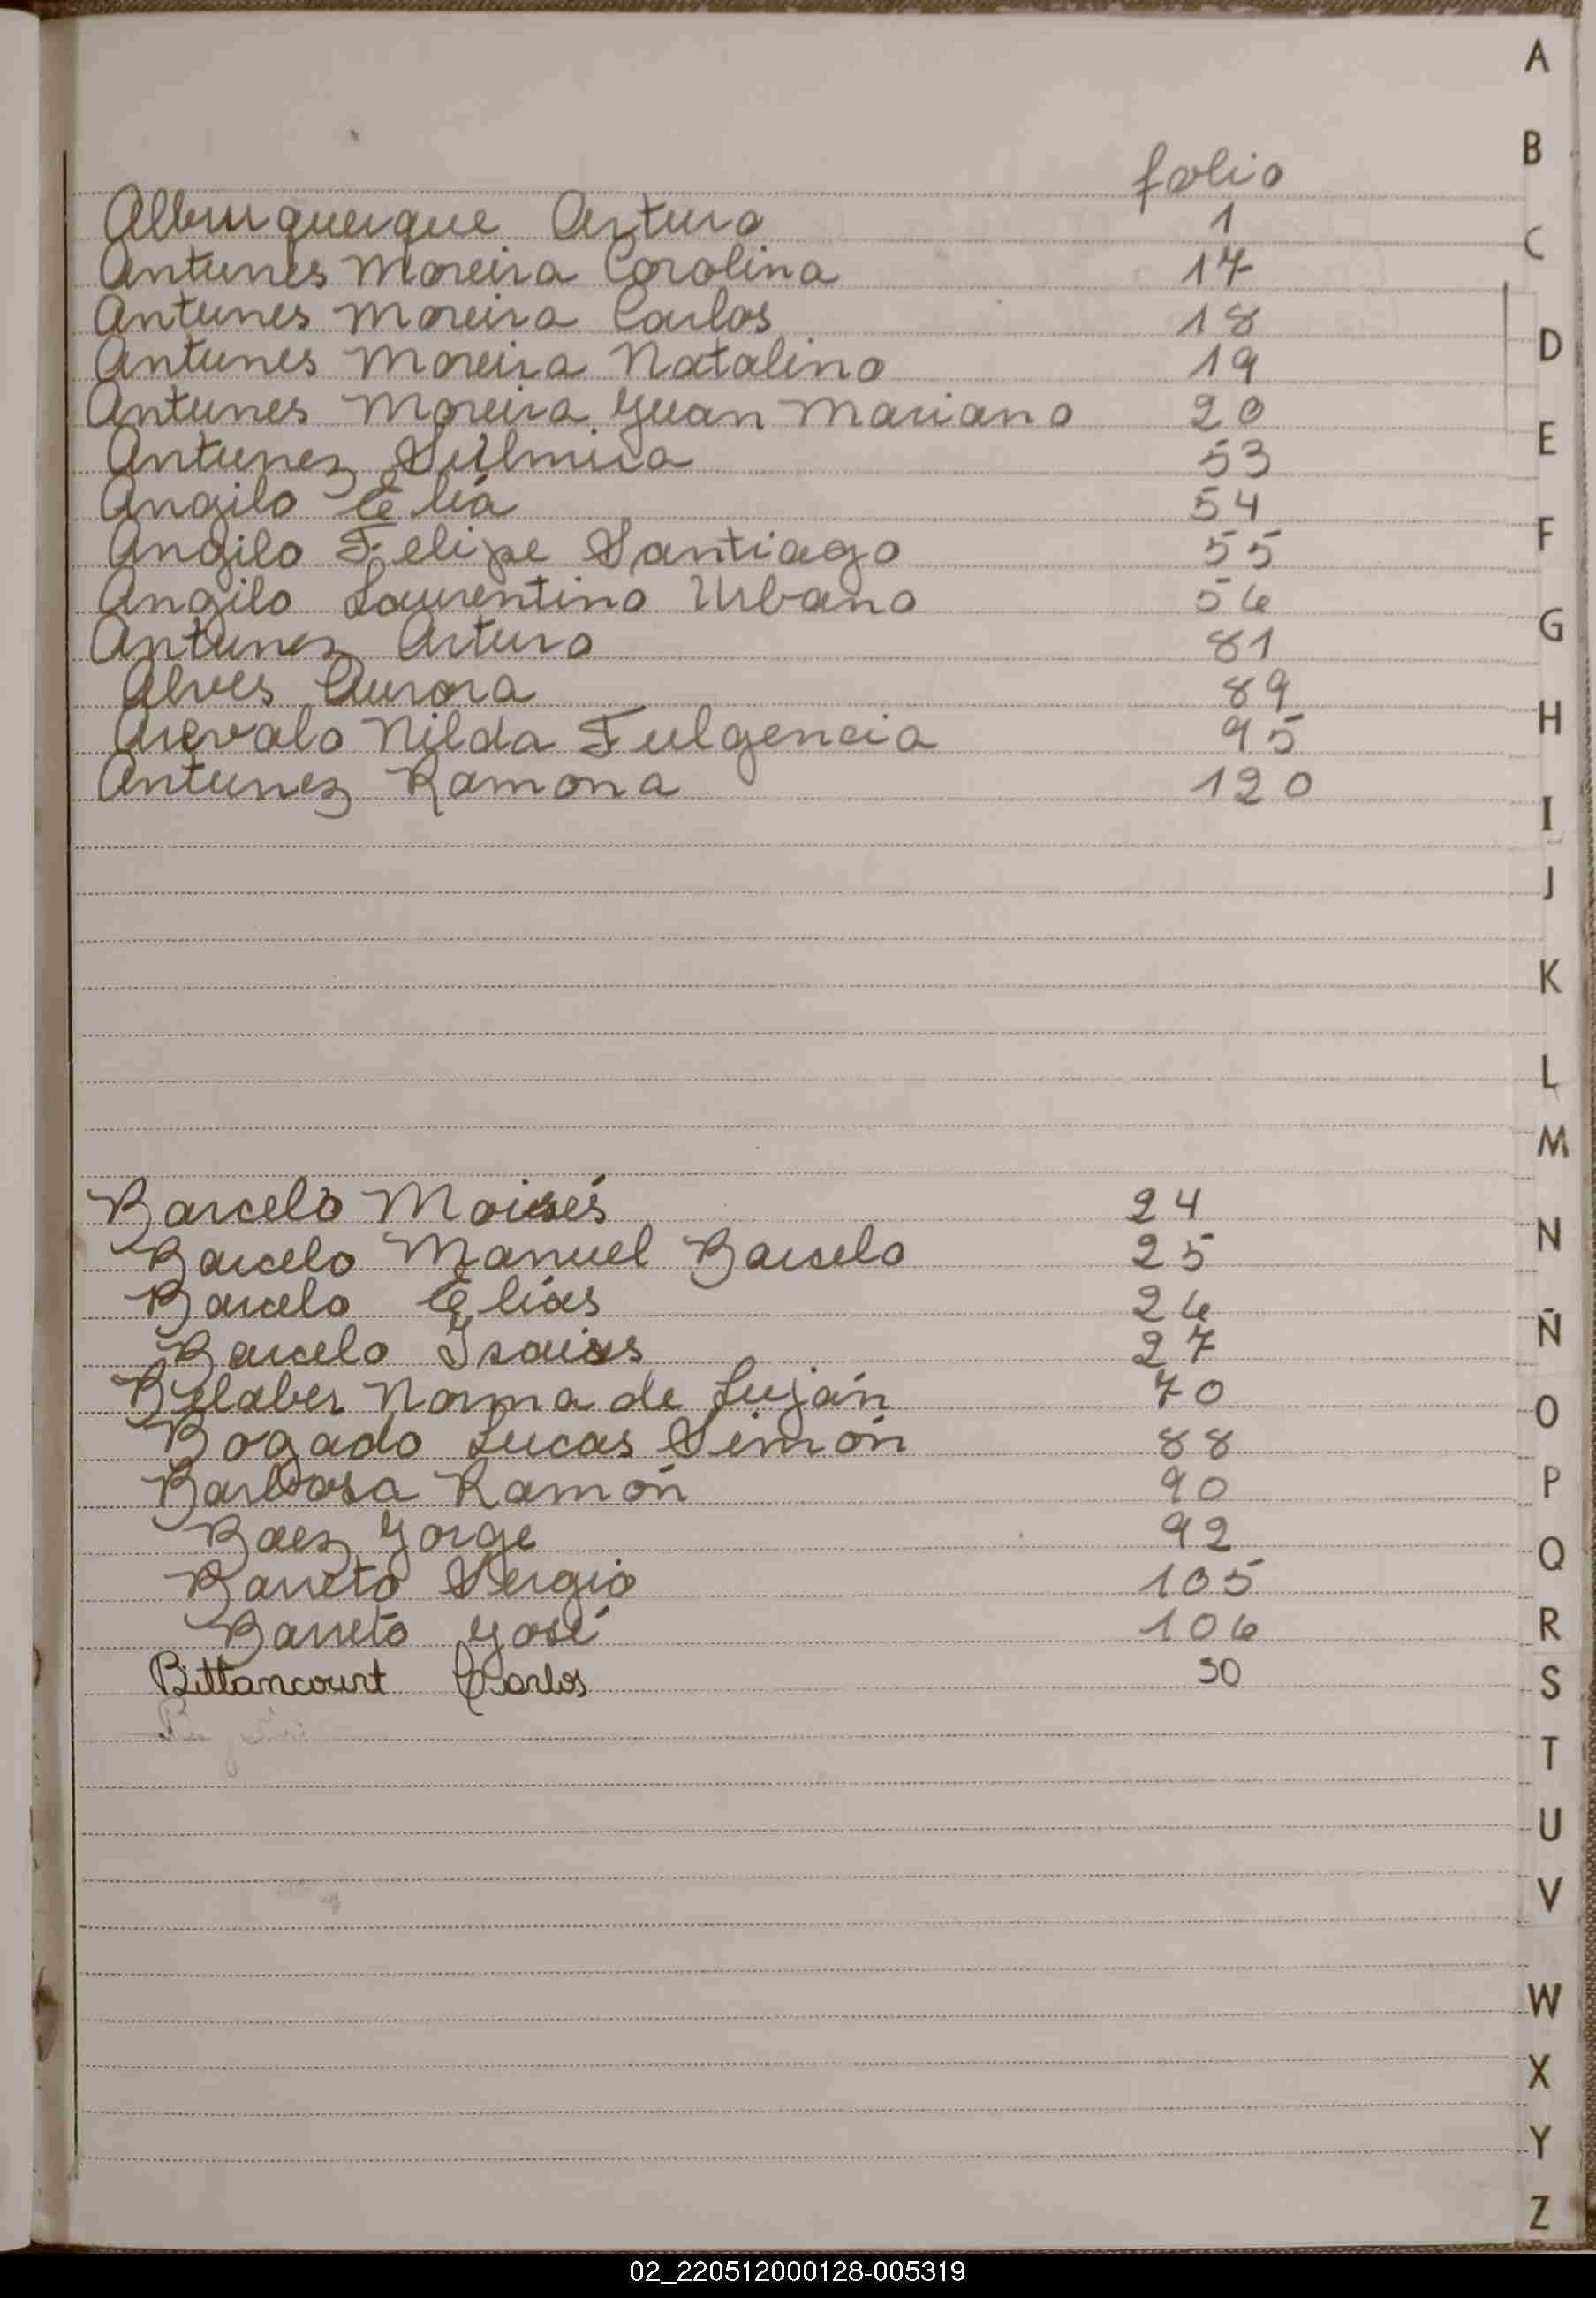 folio
Alburquerque Arturo 1
Antunes Moreira Carolina 17
Antunes Moreira Carlos 18
Antunes Moreira Natalino 19
Antunes Moreira Juan Mariano 20
Antunez Silmira 53
Angilo Eliá 54
Angilo Felipe Santiago 55
Angilo Laurentino Urbano 56
Antunez Arturo 81
Alves Aurora 89
Arevalo Nilda Fulgencia 95
Antunez Ramona 120
Barcelo Moisés 24
Barcelo Manuel Barcelo 25
Barcelo Elías 26
Barcelo Isaias 27
Norma de Luján 70
Bogado Lucas Simón 88
Barbosa Ramón 90
Baez Jorge 92
Barreto Sergio 105
Barreto José 106
Bittancourt Carlos 30
A
B
C
D
E
F
G
H
I
J
K
L
M
N
Ñ
O
P
Q
R
S
T
U
V
W
X
Y
Z
02_220512000128-005319